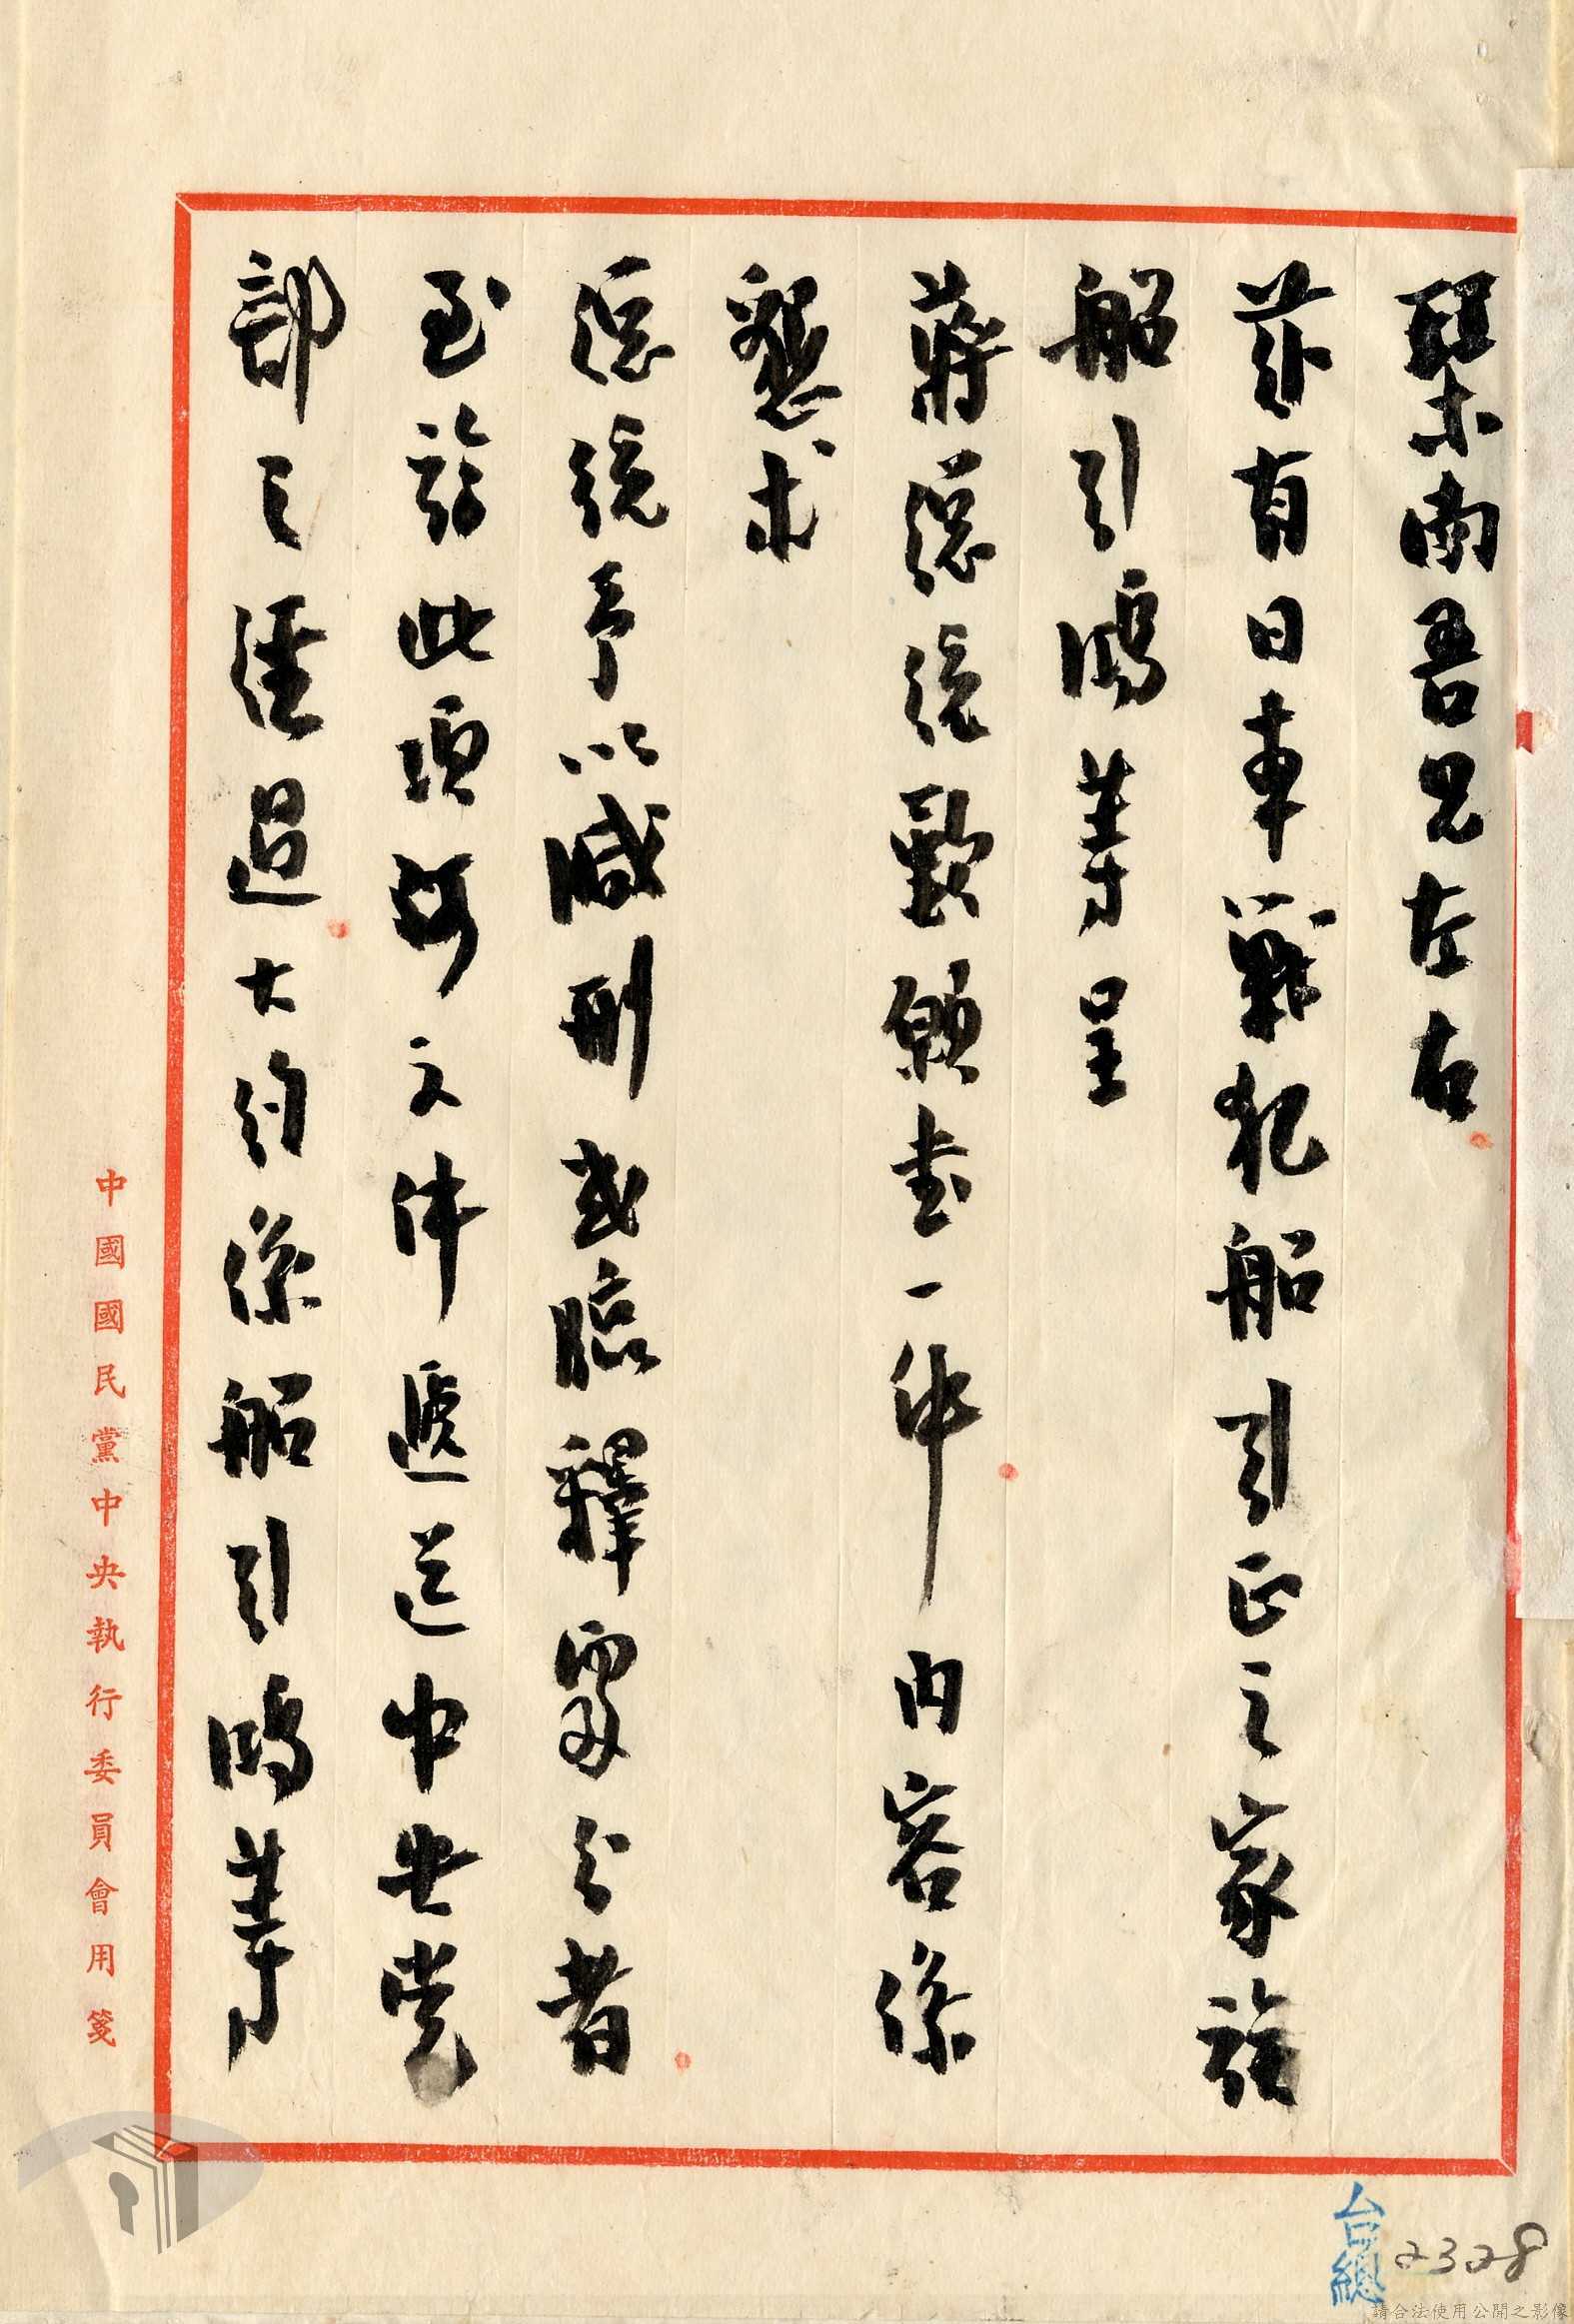 棨南吾兄左右
茲有日本戰犯船引正之家族
船引鴻等呈
蔣總統歎願書一件內容係
懇求
總統予以減刑或臨釋處分者
至於此項文件遞送中央党
部之經過大約係船引鴻等
中國國民黨中央執行委員會用箋
台總 2328
請合法使用公開之影像